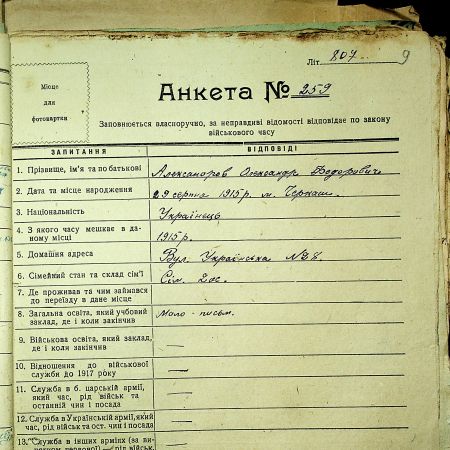 Літ. 807
9
Місце
для
фотокартки
Анкета № 259
Заповнюється власноручно, за неправдиві відомості відповідає по закону
військового часу
ЗАПИТАННЯ ВІДПОВІДІ
1. Прізвище, ім'я та по батькові Александров Олександр Федорович
2. Дата та місце народження 29 серпня 1915 р. м. Черкаси
3. Національність Українець
4. З якого часу мешкає в да-
ному місці 1915 р.
5. Домашня адреса Вул. Українська №28.
6. Сімейний стан та склад сім'ї Сім. 2 ос.
7. Де проживав та чим займався
до переїзду в дане місце
8. Загальна освіта, який учбовий
заклад, де і коли закінчив Мало-письм.
9. Військова освіта, який заклад,
де і коли закінчив —
10. Відношення до військової
служби до 1917 року —
11. Служба в б. царській армії,
який час, рід військ та
останній чин і посада —
12. Служба в Українській армії, який
час, рід військ та ост. чин і посада —
13. Служба в інших арміях (за ви-
нятком червоної) — рід військ, —